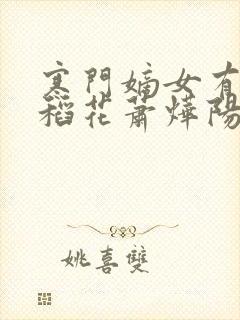 寒門嫡女有
稻花蕭燁陽
姚喜雙